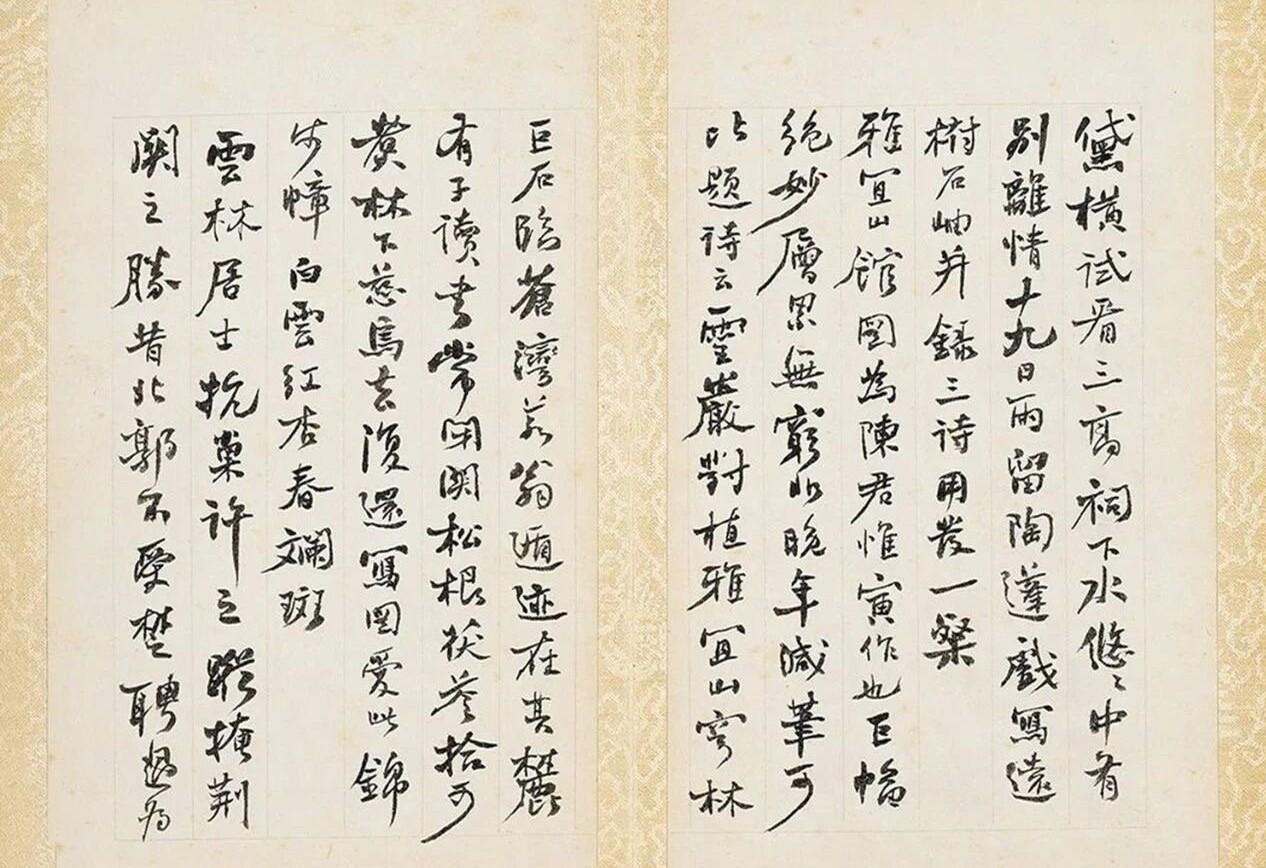 黛橫試看三高祠下水悠〻中有
別離情十九日雨留陶蓬戲寫遠
樹石岫并錄三詩用發一粲
雅宜山館圖為陳君惟寅作也巨幅
絕妙層累無窮此晚年減筆可
比題詩云靈巖對植雅宜山穹林
巨石臨蒼灣若翁遁迹在其麓
有子讀書常閉關松根茯苓拾可
煑林下慈烏去復還寫圖愛此錦
步幛白雲紅杏春斕斑
雲林居士抗巢許之蹤掩荊
關之勝昔北郭不受楚聘過為